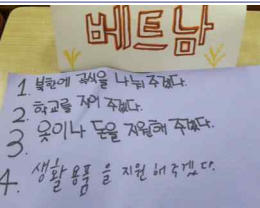 베트남
1. 북한에 곡식을 나눠 주겠다.
2. 학교를 지어 주겠다.
3. 옷이나 돈을 지원해 주겠다.
4. 생활용품을 지원해주겠다.